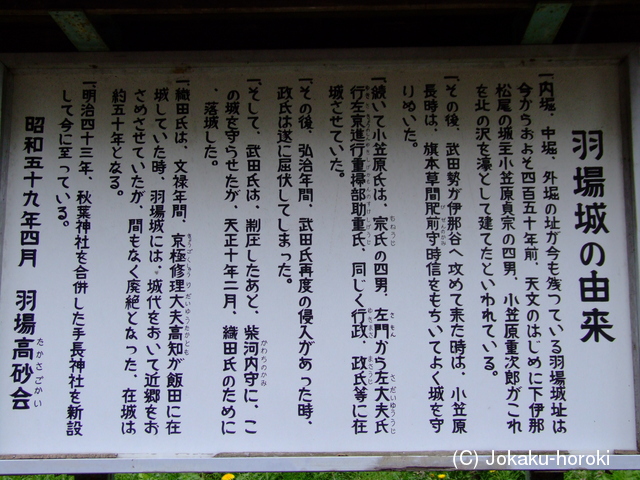 羽場城の由来
一、内堀、中堀、外堀の址が今も残つている羽場城址は
今からおよそ四百五十年前、天文のはじめに下伊那
松尾の城主小笠原貞宗の四男、小笠原重次郎がこれ
を北の沢を濠として建てたといわれている。
一、その後、武田勢が伊那谷へ攻めて来た時は、小笠原
長時は、旗本草間肥前守時信をもちいてよく城を守
りぬいた。
一、続いて小笠原氏は、宗氏の四男、左門から左大夫氏
行左京進行重掃部助重氏、同じく行政、政氏等に在
城させていた。
一、その後、弘治年間、武田氏再度の侵入があった時、
政氏は遂に屈伏してしまった。
一、そして、武田氏は、制圧したあと、柴河内守に、こ
の城を守らせたが、天正十年二月、織田氏のために
落城した。
一、織田氏は、文禄年間、京極修理大夫高知が飯田に在
城していた時、羽場城には、城代をおいて近郷をお
さめさせていたが、間もなく廃絶となった、在城は
約五十年となる。
一、明治四十三年、秋葉神社を合併した手長神社を新設
して今に至っている。
昭和五十九年四月 羽場高砂会
(C) Jokaku-horoki